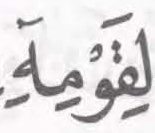 لِقَوْمِهِ